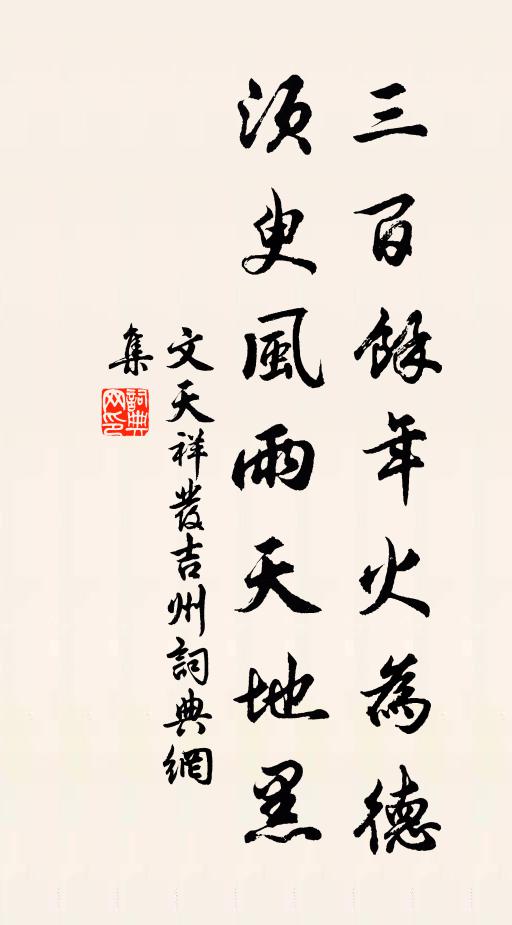 三百餘年火為德
須臾風雨天地黑
文天祥發吉州詞典網
集
詞典
网印